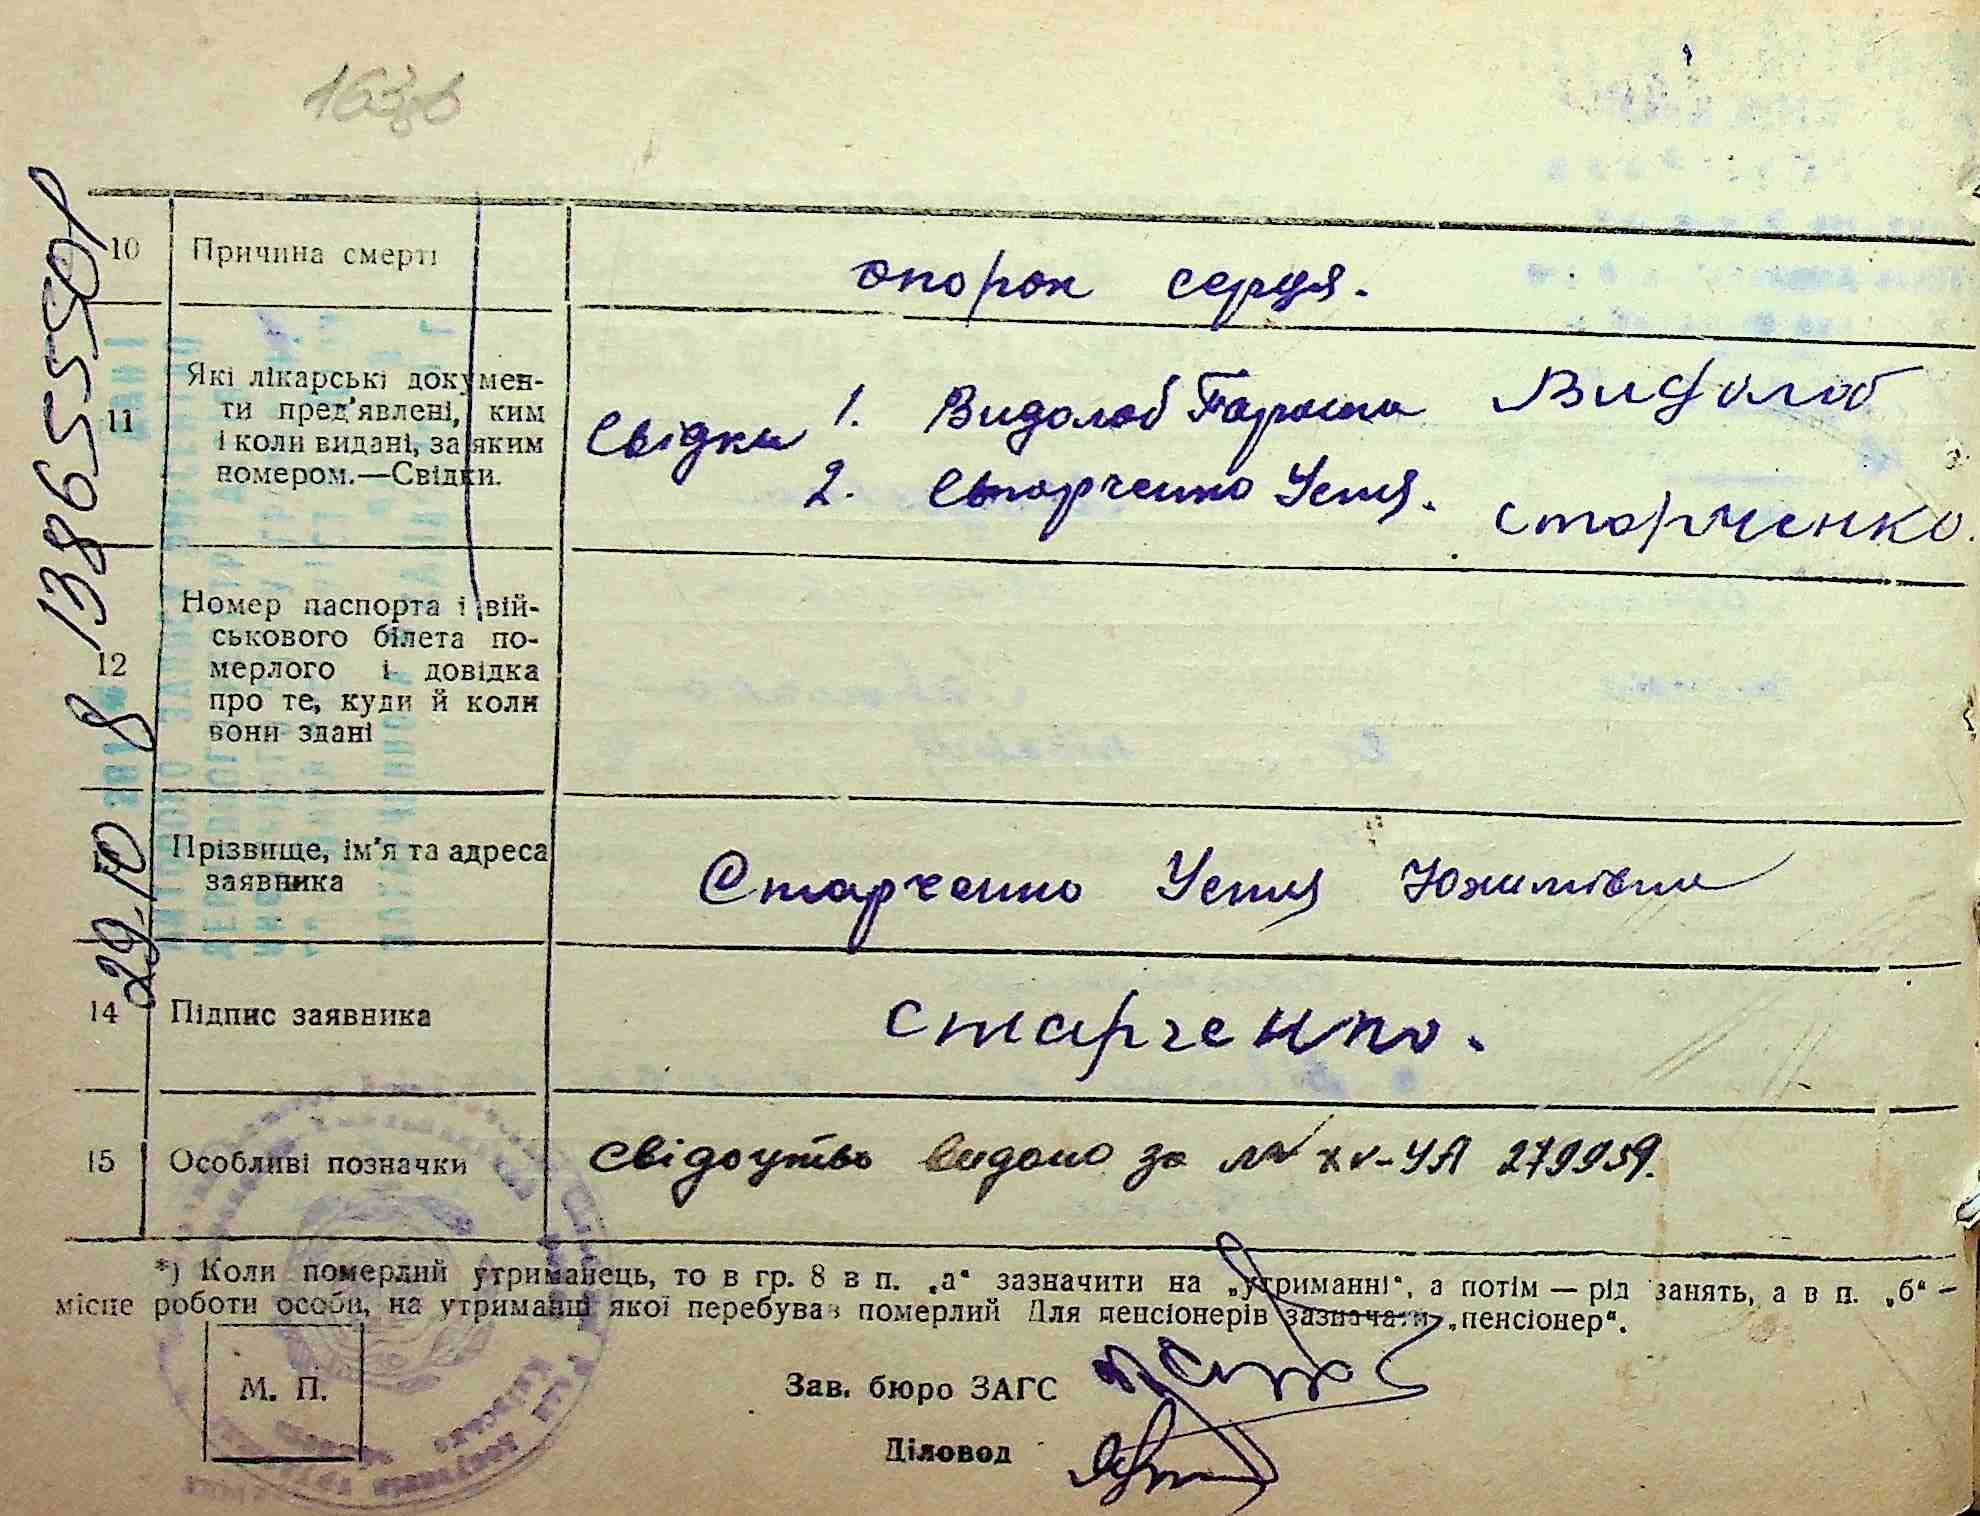 1636
29.10 8 13865550
10 Причина смерті опорок серця.
11 Які лікарські докумен-
ти пред'явлені, ким
і коли видані, за яким
номером.—Свідки.
Свідки 1. Видолоб Параска Видолоб
2. Старченко Устя. Старченко.
12 Номер паспорта і вій-
ськового білета по-
мерлого і довідка
про те, куди й коли
вони здані
Прізвище, ім'я та адреса
заявника
Старченко Устя Юхимівна
14 Підпис заявника Старченко.
15 Особливі позначки Свідоцтво видано за № XV-УА 279959.
*) Коли померлий утриманець, то в гр. 8 в п. „а“ зазначити на „утриманні“, а потім — рід занять, а в п. „б“ —
місце роботи особи, на утриманні якої перебував померлий Для пенсіонерів зазначати „пенсіонер“.
М. П.
Зав. бюро ЗАГС
Діловод